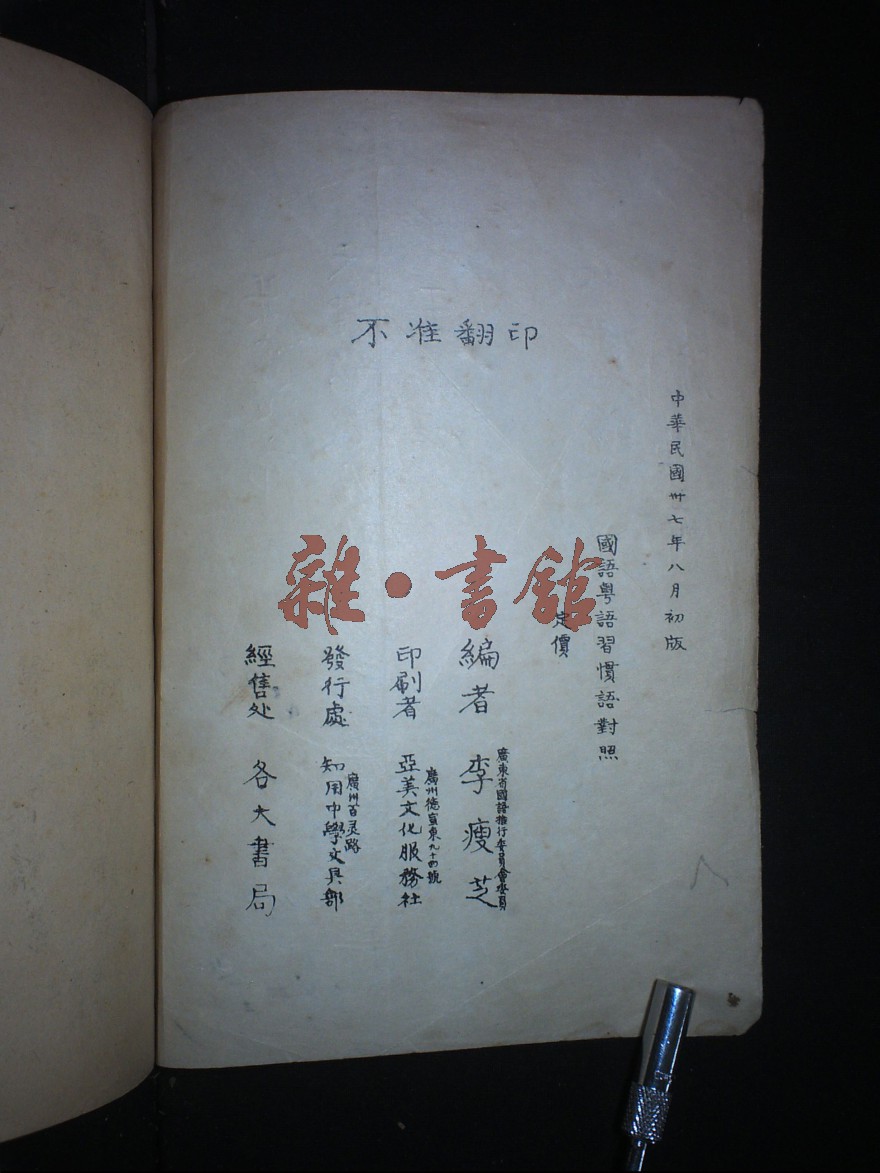 不准翻印
中華民國卅七年八月初版
國語粵語習慣語對照
定價
廣東省國語推行委員會委員
編者 李瘦芝
廣州德宣東九十四號
印刷者 亞美文化服務社
廣州百灵路
發行處 知用中學文具部
經售处 各大書局
雜·書館